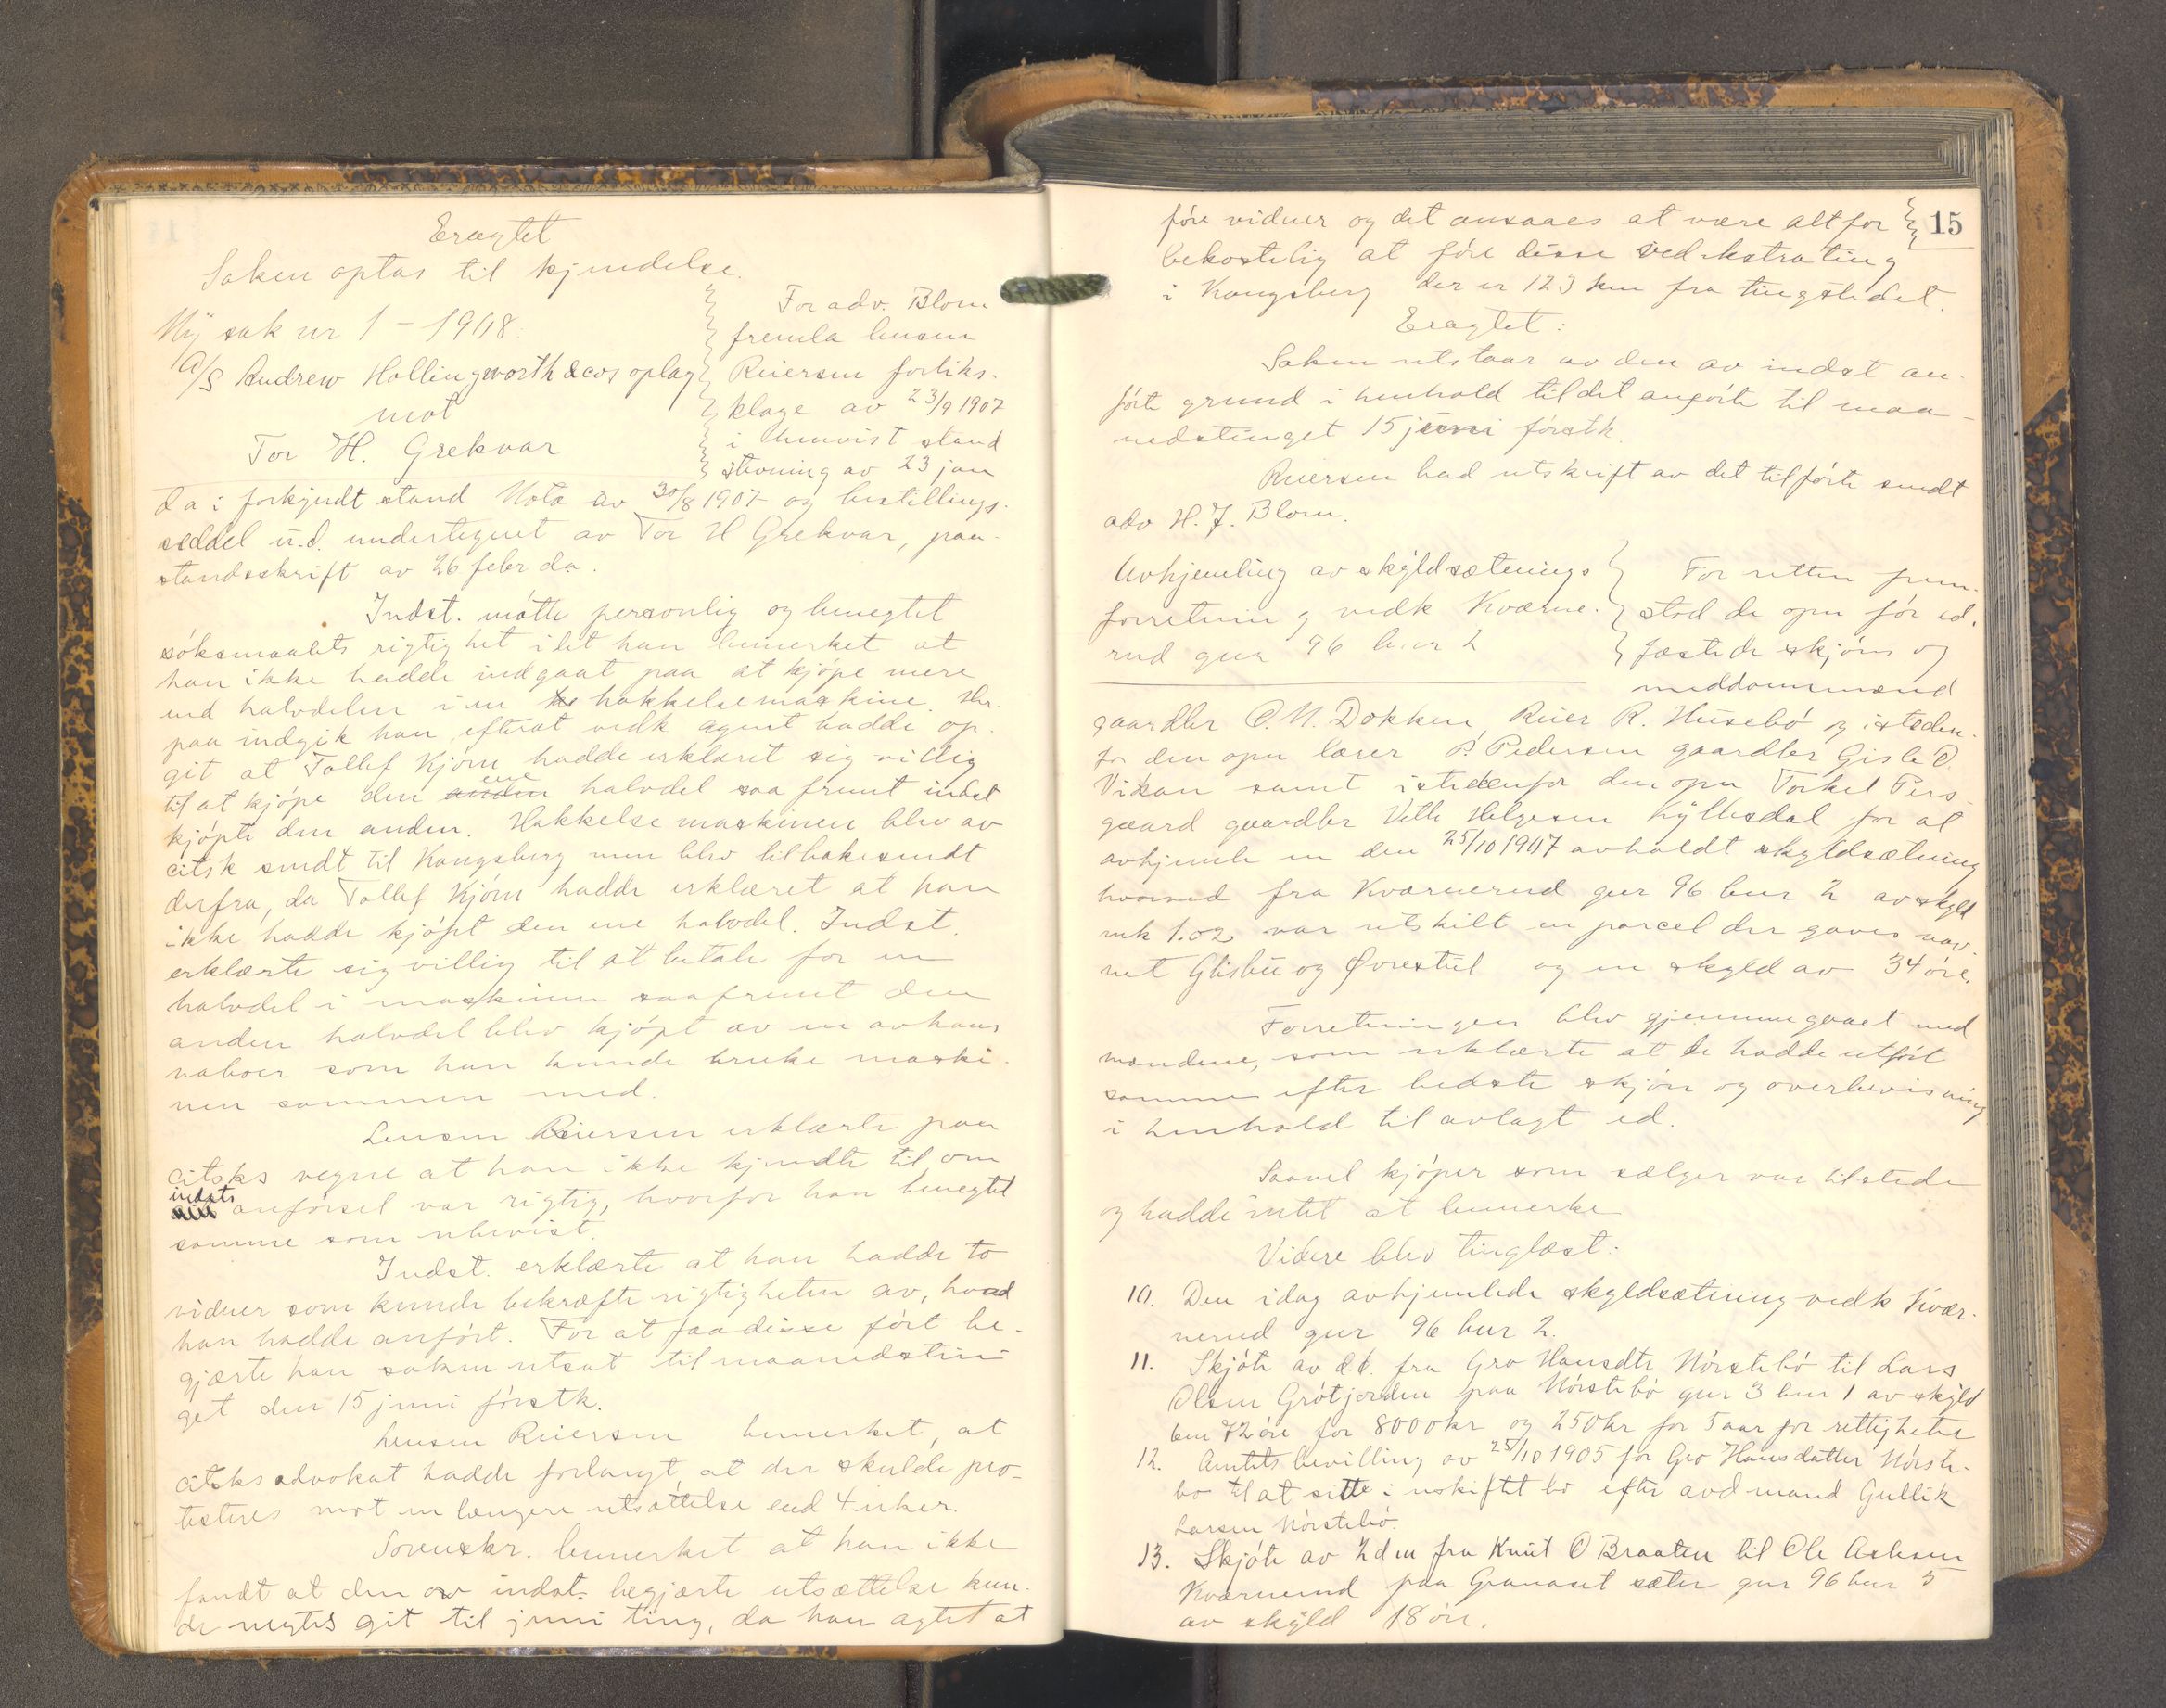 Eragtet
Saken optas til kjendelse.
Ny sak nr 1 – 1908.
A/S Andrew Hollingworth & cos oplag
mot
Tor H. Grekvar
For adv. Blom
fremla lensm
Reiersen forliks-
klage av 23/9 1907
i ubevist stand
stevning av 23 jan
da i forkyndt stand Nota av 30/8 1907 og bestillings-
seddel u.d. undertegnet av Tor H Grekvar, paa-
standsskrift av 26 febr da.
Indst. møtte personlig og benegtet
søksmaalets rigtighet idet han bemerket at
han ikke hadde indgaat paa at kjøpe mere
end halvdelen i en hakkelsemaskine. Her-
paa indgik han efterat vedk agent hadde op-
git at Tollef Kjøm hadde erklæret sig villig
til at kjøpe den ene halvdel saafremt indst
kjøpte den anden. Hakkelsemaskinen blev av
citsk sendt til Kongsberg men blev tilbakesendt
derfra, da Tollef Kjøm hadde erklæret at han
ikke hadde kjøpt den ene halvdel. Indst.
erklærte sig villig til at betale for en
halvdel i maskinen saafremt den
anden halvdel blev kjøpt av en av hans
naboer som han kunde bruke maski-
nen sammen med.
Lensm Reiersen erklærte paa
citsks vegne at han ikke kjendte til om
indsts anførsel var rigtig, hvorfor han benegtet
samme som ubevist.
Indst. erklærte at han hadde to
vidner som kunde bekræfte rigtigheten av, hvad
han hadde anført. For at faa disse ført be-
gjærte han saken utsat til maanedstin-
get den 15 juni førstk.
Lensm Reiersen bemerket, at
citsks advokat hadde forlangt at der skulde pro-
testeres mot en længere utsættelse end 4 uker.
Sorenskr. bemerket at han ikke
fandt at den av indst. begjærte utsættelse kun-
de negtes git til juni ting, da han agtet at
15
føre vidner og det ansaaes at være altfor
bekostelig at føre disse ved ekstrating
i Kongsberg der er 123 km fra tingstedet.
Eragtet:
Saken utstaar av den av indst an-
førte grund i henhold til det anførte til maa-
nedstinget 15 juni førstk.
Reiersen bad utskrift av det tilførte sendt
adv H. J. Blom.
Avhjemling av skyldsætnings
forretning vedk Kværne-
rud gnr 96 bnr 2
For retten frem-
stod de opn før ed-
fæstede skjøns og
meddommsmænd
gaardbr O. N. Dokken, Reier R. Husebø og isteden-
for den opn lærer P. Pedersen gaardbr Gisle O.
Vikan samt istedenfor den opn Torkel Pers-
gaard gaardbr Vetle Helgesen Kyllesdal for at
avhjemle en den 25/10 1907 avholdt skyldsætning
hvorved fra Kværnerud gnr 96 bnr 2 av skyld
mk 1.02 var utskilt en parcel der gaves nav-
net Glisbu og Øvrestul og en skyld av 34 øre.
Forretningen blev gjennemgaaet med
mændene, som erklærte at de hadde utført
samme efter bedste skjøn og overbevisning
i henhold til avlagt ed.
Saavel kjøper som sælger var tilstede
og hadde intet at bemerke
Videre blev tinglæst:
10. Den idag avhjemlede skyldsætning vedk Kvær-
nerud gnr 96 bnr 2.
11. Skjøte av d.d. fra Gro Hansdtr Nørstebø til Lars
Olsen Grøtjorden paa Nørstebø gnr 3 bnr 1 av skyld
72 øre for 8000 kr og 250 kr for 5 aar for rettigheter
12. Amtets bevilling av 25/10 1905 for Gro Hansdatter Nørste-
bø til at sitte i uskiftet bo efter avd mand Gullik
Larsen Nørstebø.
13. Skjøte av 2 dm fra Knut O Braaten til Ole Aslesen
Kværnerud paa Granaset sæter gnr 96 bnr 5
av skyld 18 øre.